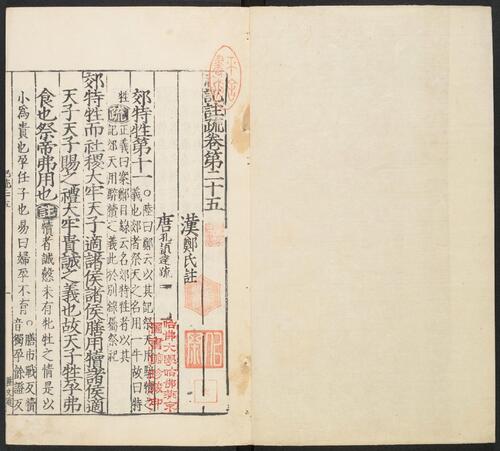 記註疏卷第二十五
漢鄭氏註
唐孔穎達疏
郊特牲第十一
○陸曰鄭云以其記祭天用騂犢之
義也郊者祭天之名用一牛故曰特
牲
疏
正義曰案鄭目錄云名郊特牲者以其
記郊天用騂犢之義此於別錄屬祭祀
郊特牲而社稷大牢天子適諸侯諸侯膳用犢諸侯適
天子天子賜之禮大牢貴誠之義也故天子牲孕弗
食也祭帝弗用也
註
犢者誠慤未有牝牡之情是以
小爲貴也孕任子也易曰婦孕不育
○膳市戰反犢
音獨孕餘證反
哈佛大學哈佛燕京
圖書館珍藏印